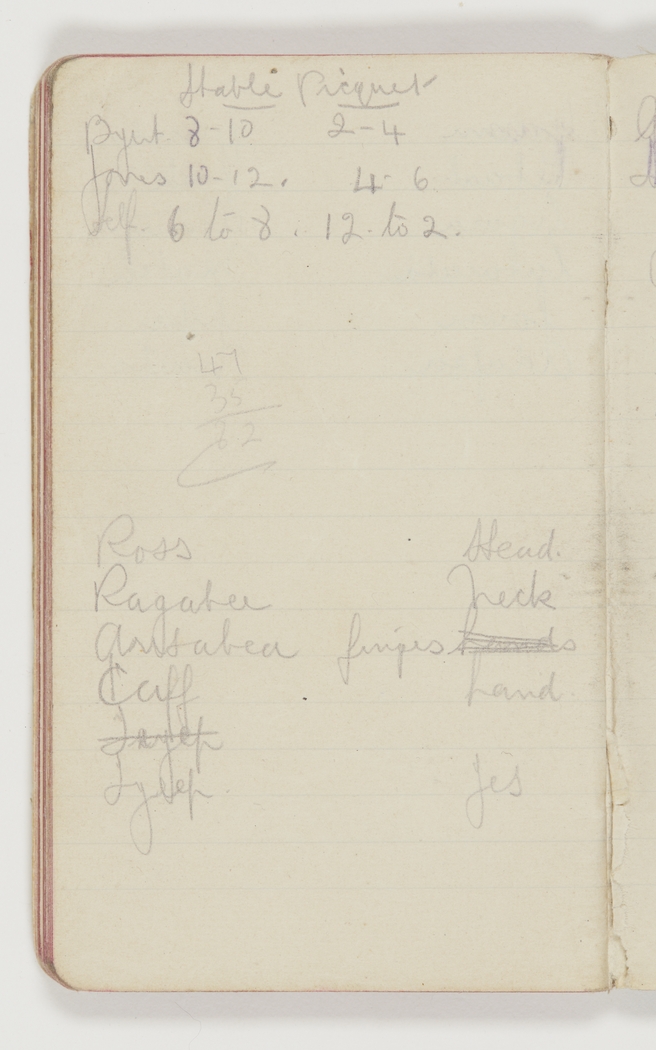 Stable Picquet
Byut 8-10 2-4
Jones 10-12. 4-6
Self. 6 to 8. 12. to 2.
47
35
82
Ross Head.
Ragabee Neck
Asitabea finges hands
Caff hand.
Izyep
Izyep. yes